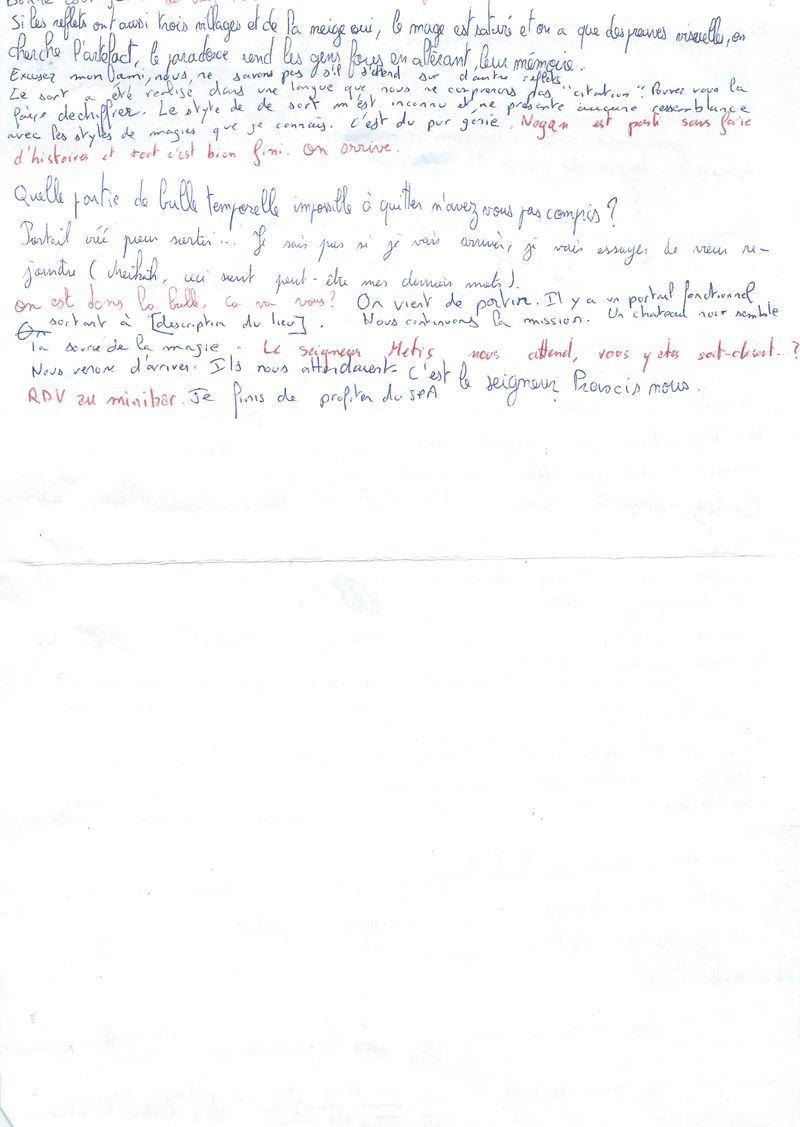 Si les reflets ont aussi trois villages et de la neige oui, le mage est saturé et on a que des preuves visuelles, on
cherche l'artefact, le paradoxe rend les gens fous en altérant leur mémoire.
Excusez mon ami, nous ne savons pas s'il s'étend sur d'autre reflets
Le sort a été réalisé dans une langue que nous ne comprenons pas "citation". Pouvez vous la
faire déchiffrer. Le style de de sort m'est inconnu et ne présente aucune ressemblance
avec les styles de magies que je connais. c'est du pur génie. Nogan est parti sans faire
d'histoires et tout c'est bien fini. On arrive.
Quelle partie de bulle temporelle impossible à quitter n'avez vous pas compris ?
Portail créé pour sortir... Je sais pas si je vais arriver, je vais essayer de vous re-
joindre ( , ceci sont peut-être mes derniers mots).
on est dans la bulle, ca va vous? On vient de partir. Il y a un portail fonctionnel
sortant à [description du lieu]. Nous continuons la mission. Un chateau noir semble
la source de la magie. Le seigneur Metis nous attend, vous y etes soit-disant..?
Nous venons d'arriver. Ils nous attendaient. C'est le seigneur Francis nous.
RDV au minibar. Je finis de profiter du SPA